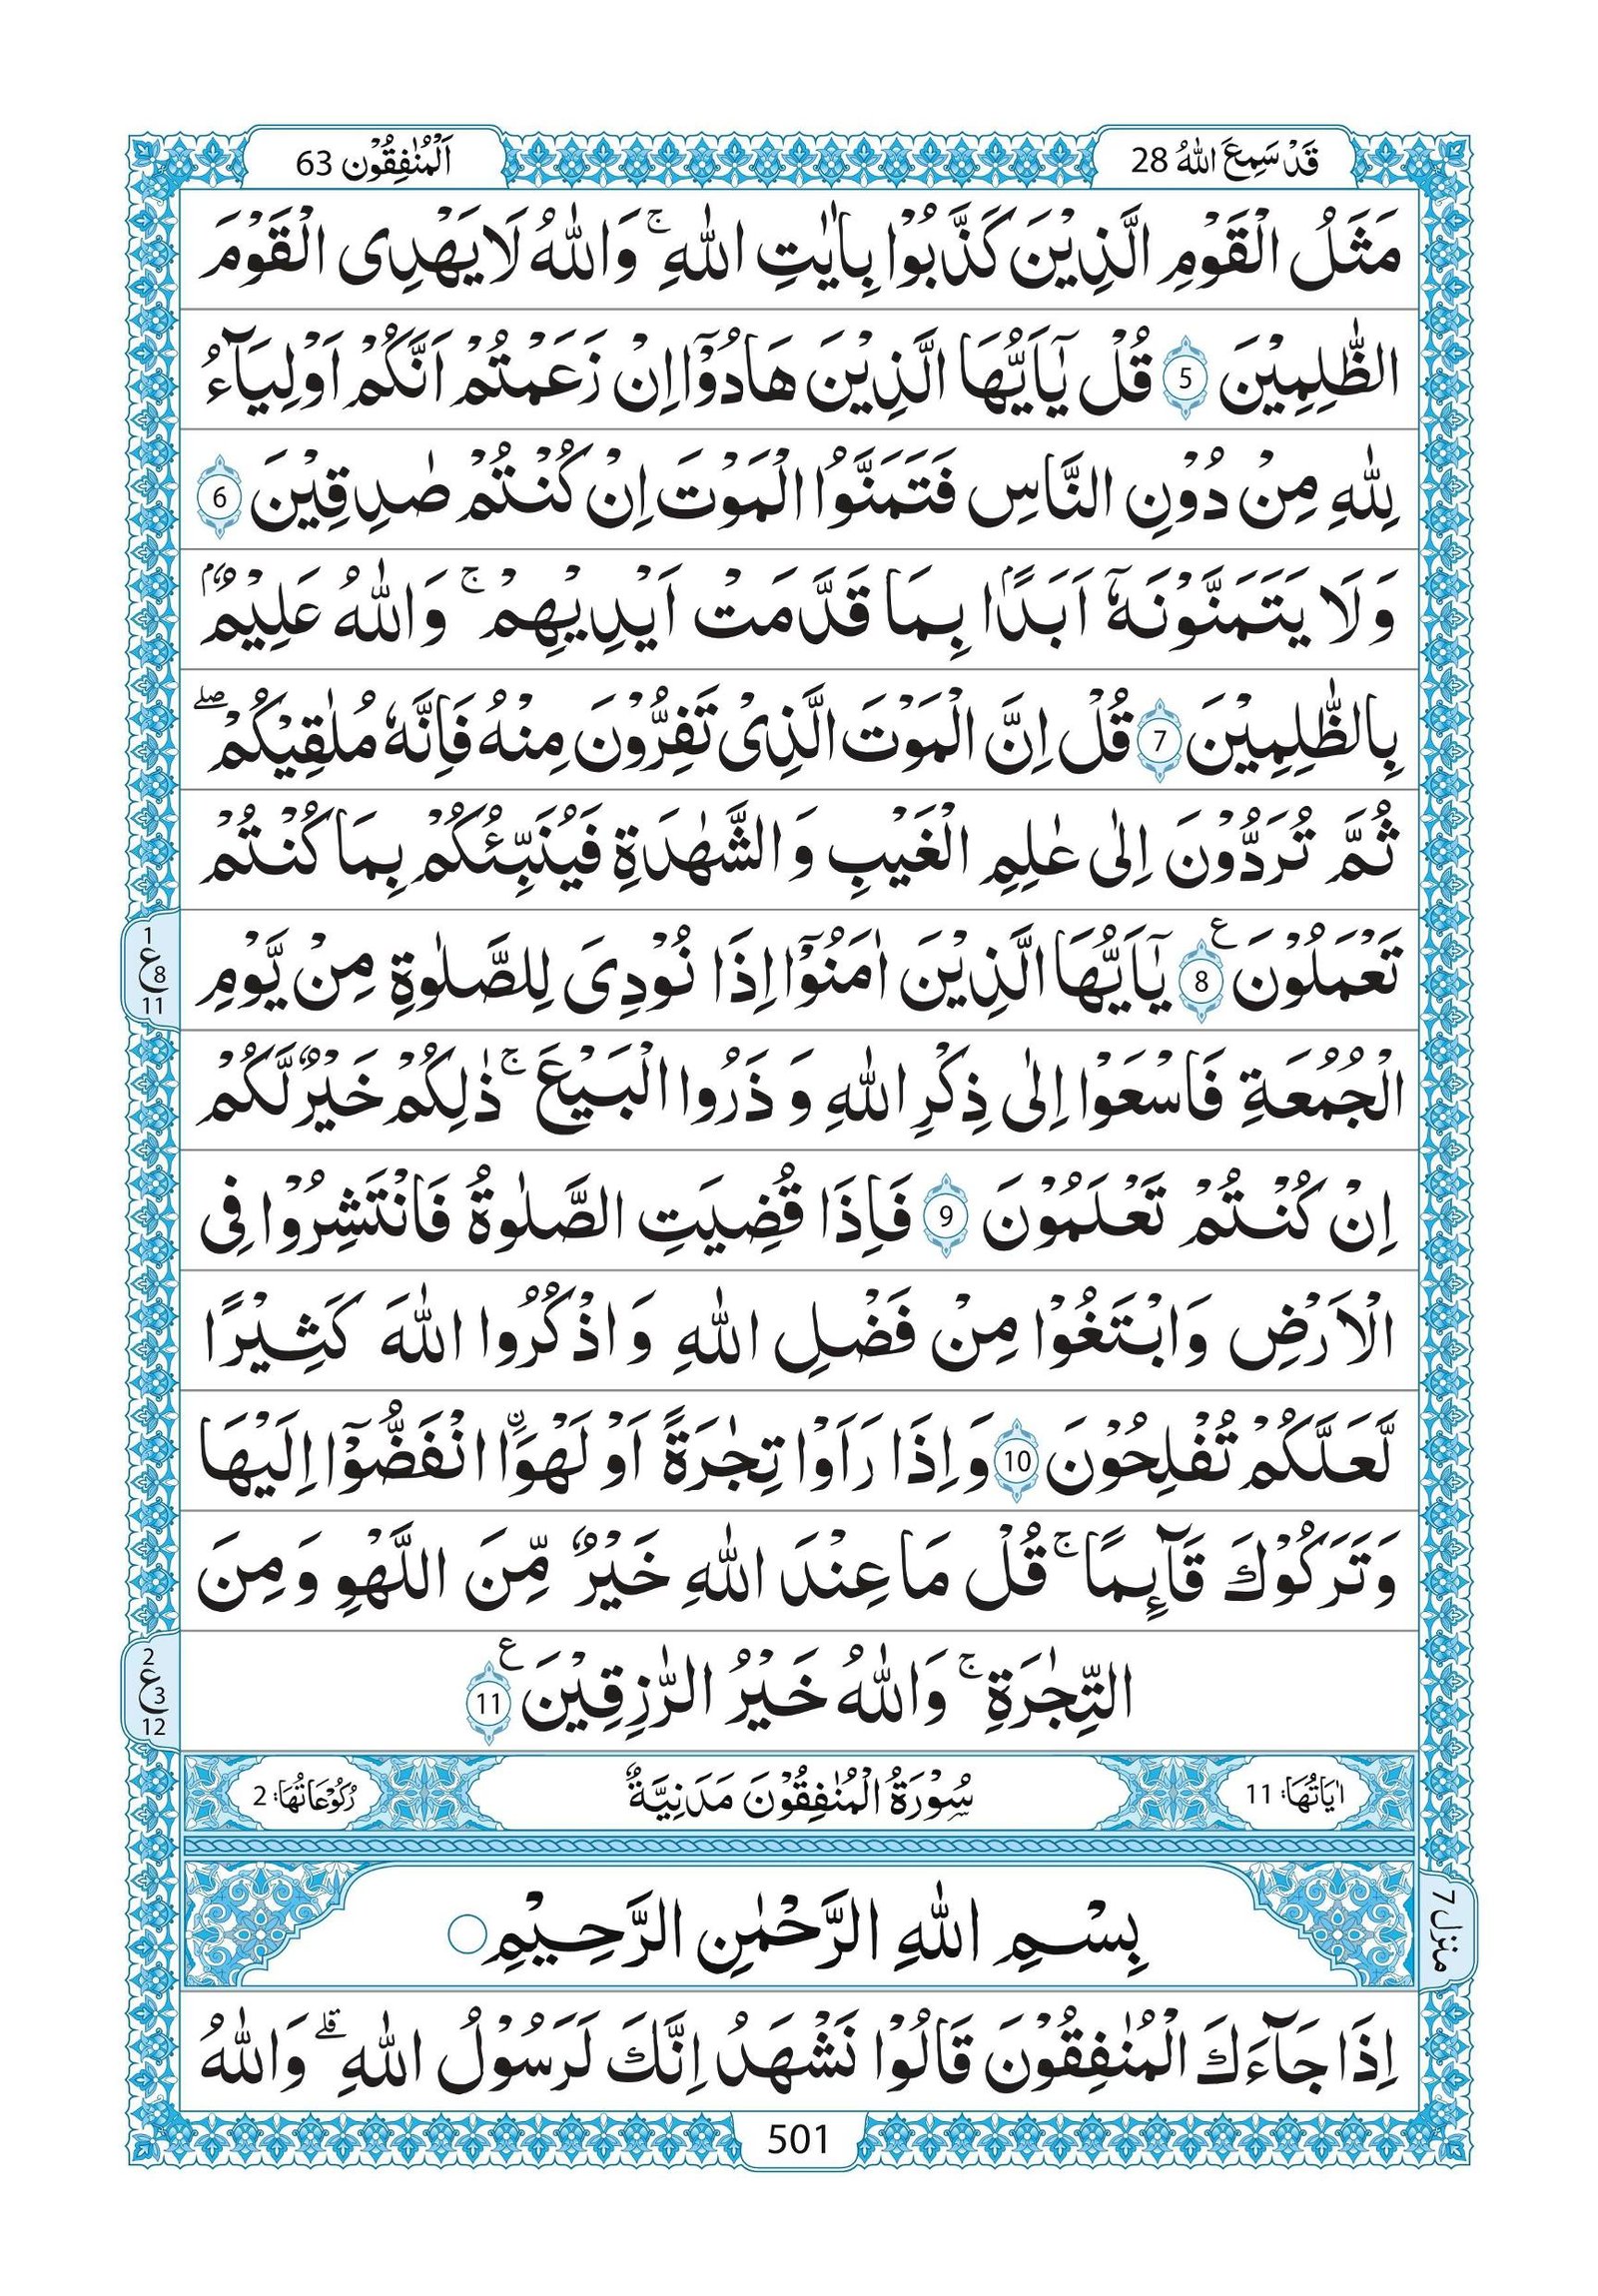 قَدْ سَمِعَ اللّٰهُ 28
اَلْمُنٰفِقُوْن 63
مَثَلُ الْقَوْمِ الَّذِیْنَ كَذَّبُوْا بِاٰیٰتِ اللّٰهِ ۚ وَاللّٰهُ لَا یَهْدِی الْقَوْمَ
الظّٰلِمِیْنَ 5 قُلْ یٰۤاَیُّهَا الَّذِیْنَ هَادُوْۤا اِنْ زَعَمْتُمْ اَنَّكُمْ اَوْلِیَآءُ
لِلّٰهِ مِنْ دُوْنِ النَّاسِ فَتَمَنَّوُا الْمَوْتَ اِنْ كُنْتُمْ صٰدِقِیْنَ 6
وَلَا یَتَمَنَّوْنَهٗۤ اَبَدًۢا بِمَا قَدَّمَتْ اَیْدِیْهِمْ ۚ وَاللّٰهُ عَلِیْمٌۢ
بِالظّٰلِمِیْنَ 7 قُلْ اِنَّ الْمَوْتَ الَّذِیْ تَفِرُّوْنَ مِنْهُ فَاِنَّهٗ مُلٰقِیْكُمْ ۖ
ثُمَّ تُرَدُّوْنَ اِلٰی عٰلِمِ الْغَیْبِ وَ الشَّهٰدَةِ فَیُنَبِّئُكُمْ بِمَا كُنْتُمْ
تَعْمَلُوْنَ ع 8 یٰۤاَیُّهَا الَّذِیْنَ اٰمَنُوْۤا اِذَا نُوْدِیَ لِلصَّلٰوةِ مِنْ یَّوْمِ
1 ع 8 11
الْجُمُعَةِ فَاسْعَوْا اِلٰی ذِكْرِ اللّٰهِ وَ ذَرُوا الْبَیْعَ ۚ ذٰلِكُمْ خَیْرٌ لَّكُمْ
اِنْ كُنْتُمْ تَعْلَمُوْنَ 9 فَاِذَا قُضِیَتِ الصَّلٰوةُ فَانْتَشِرُوْا فِی
الْاَرْضِ وَابْتَغُوْا مِنْ فَضْلِ اللّٰهِ وَ اذْكُرُوا اللّٰهَ كَثِیْرًا
لَّعَلَّكُمْ تُفْلِحُوْنَ 10 وَ اِذَا رَاَوْا تِجٰرَةً اَوْ لَهْوَا ۨانْفَضُّوْۤا اِلَیْهَا
وَتَرَكُوْكَ قَآىِٕمًا ۚ قُلْ مَا عِنْدَ اللّٰهِ خَیْرٌ مِّنَ اللَّهْوِ وَ مِنَ
التِّجٰرَةِ ۚ وَاللّٰهُ خَیْرُ الرّٰزِقِیْنَ ع 11
2 ع 3 12
اٰیَاتُهَا: 11 سُوْرَةُ الْمُنٰفِقُوْنَ مَدَنِیَّةٌ رُكُوْعَاتُهَا: 2
بِسْمِ اللّٰهِ الرَّحْمٰنِ الرَّحِیْمِ ○
منزل 7
اِذَا جَآءَكَ الْمُنٰفِقُوْنَ قَالُوْا نَشْهَدُ اِنَّكَ لَرَسُوْلُ اللّٰهِ ۘ وَاللّٰهُ
501